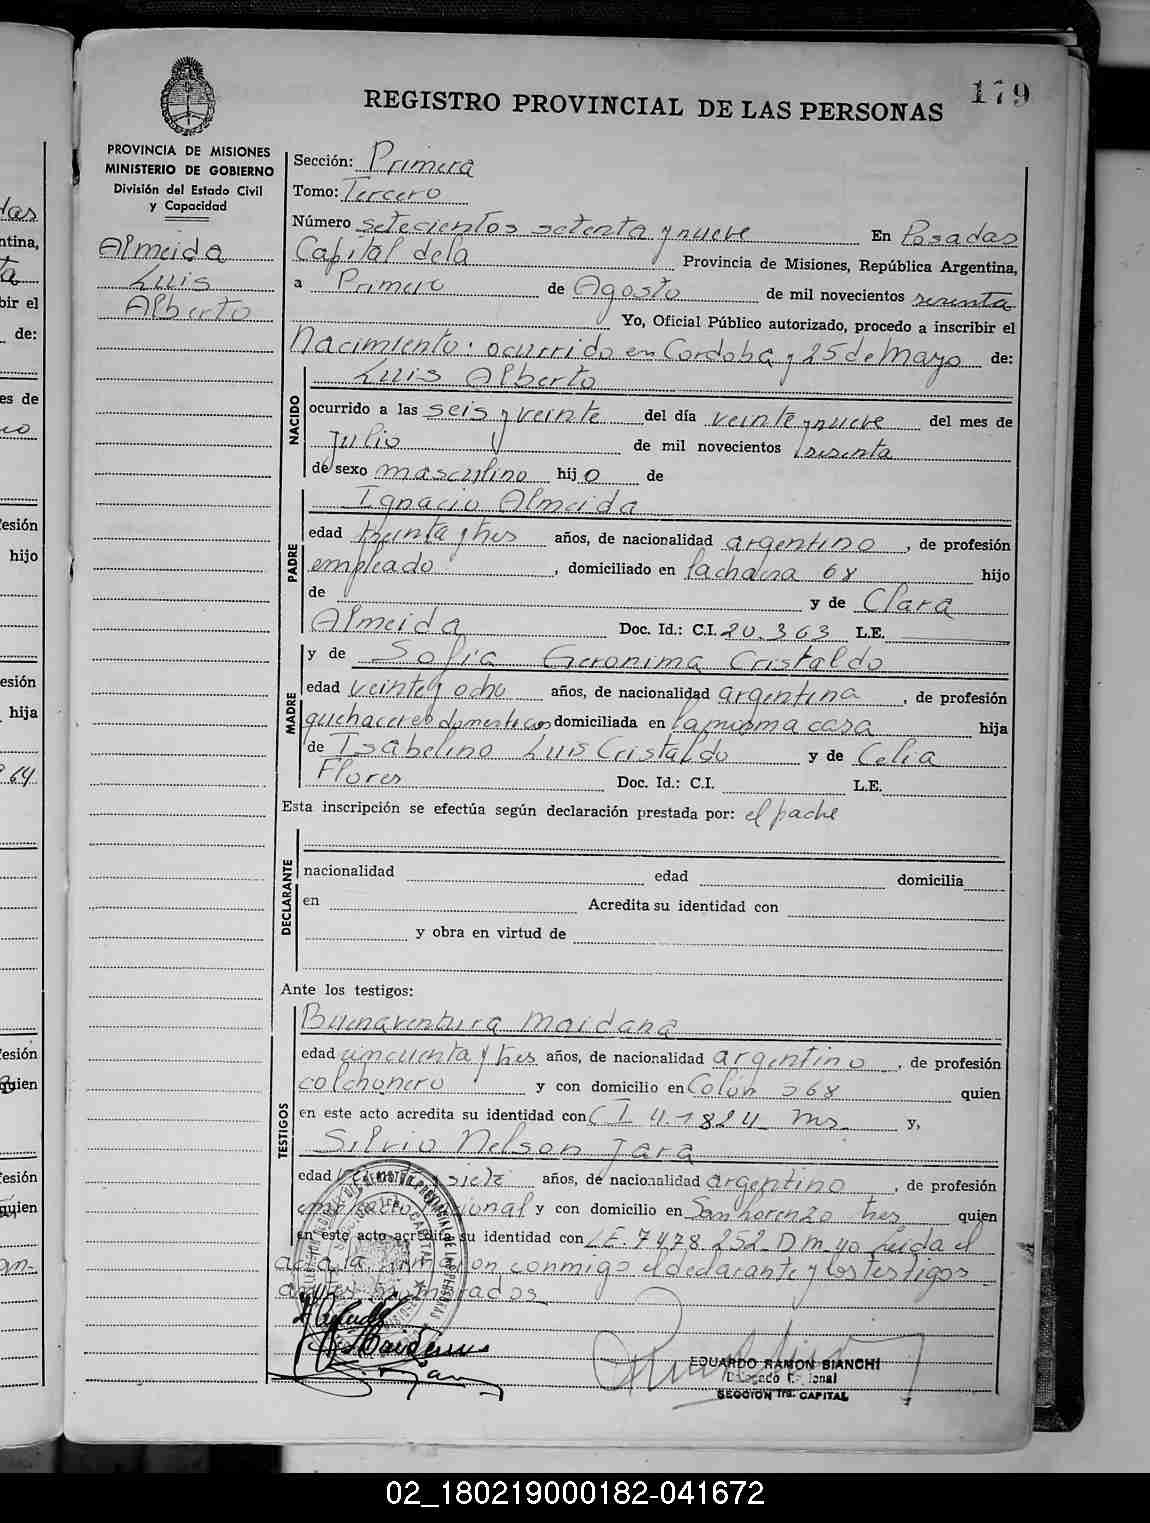 179
REGISTRO PROVINCIAL DE LAS PERSONAS
PROVINCIA DE MISIONES
MINISTERIO DE GOBIERNO
División del Estado Civil
y Capacidad
Almeida
Luis
Alberto
Sección: Primera
Tomo: Tercero
Número setecientos setenta y nueve En Posadas
Capital dela Provincia de Misiones, República Argentina,
a Primero de Agosto de mil novecientos sesenta
Yo, Oficial Público autorizado, procedo a inscribir el
Nacimiento: ocurrido en Cordoba y 25 de Mayo de:
NACIDO
Luis Alberto
ocurrido a las seis y veinte del día veinte y nueve del mes de
Julio de mil novecientos sesenta
de sexo masculino hijo de
PADRE
Ignacio Almeida
edad treinta y tres años, de nacionalidad argentino, de profesión
empleado, domiciliado en la chacra 68 hijo
de y de Clara
Almeida Doc. Id.: C.I. 20.363 L.E.
MADRE
y de Sofia Geronima Cristaldo
edad veinte y ocho años, de nacionalidad argentina, de profesión
quehaceres domesticos domiciliada en la misma casa hija
de Isabelino Luis Cristaldo y de Celia
Flores Doc. Id.: C.I. L.E.
Esta inscripción se efectúa según declaración prestada por: el padre
DECLARANTE
nacionalidad edad domicilia
en Acredita su identidad con
y obra en virtud de
Ante los testigos:
TESTIGOS
Buenaventura Maidana
edad cincuenta y tres años, de nacionalidad argentino, de profesión
colchonero y con domicilio en Colón 368 quien
en este acto acredita su identidad con C I 4.1824 Ms. y,
Silvio Nelson Jara
edad siete años, de nacionalidad argentino, de profesión
y con domicilio en San Lorenzo tres quien
en este acto acredita su identidad con L.E. 7478.252 D m yo Leida el
acta la firmaron conmigo el declarante y los testigos
antes nombrados
EDUARDO RAMON BIANCHI
Delegado
SECCION 1ra. CAPITAL
02_180219000182-041672